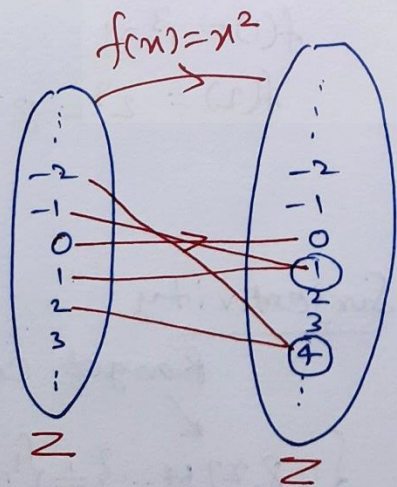 f(x)=x²
⋮
-2
-1
0
1
2
3
⋮
Z
⋮
-2
-1
0
1
2
3
4
⋮
Z